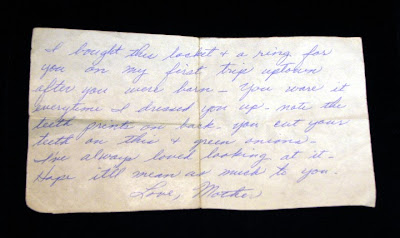 I bought this locket & a ring for
you on my first trip uptown
after you were born - You wore it
everytime I dressed you up - note the
teeth prints on back - you cut your
teeth on this & green onions -
I've always loved looking at it -
Hope it'll mean as much to you -
Love, Mother